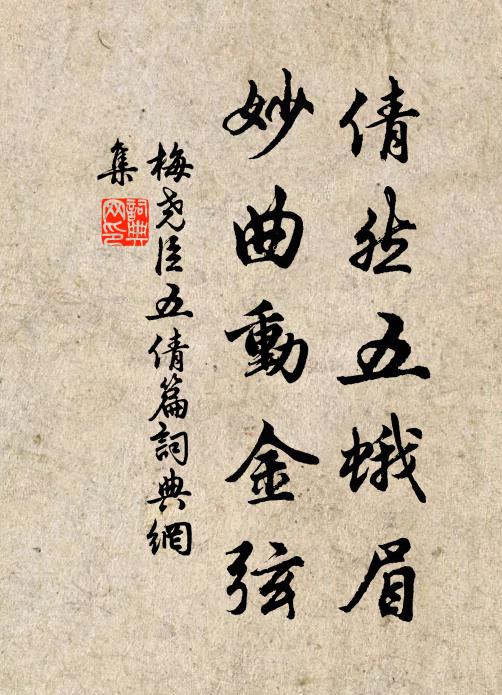 倩然五蛾眉
妙曲動金弦
梅尧臣五倩篇詞典網
集
詞典网印